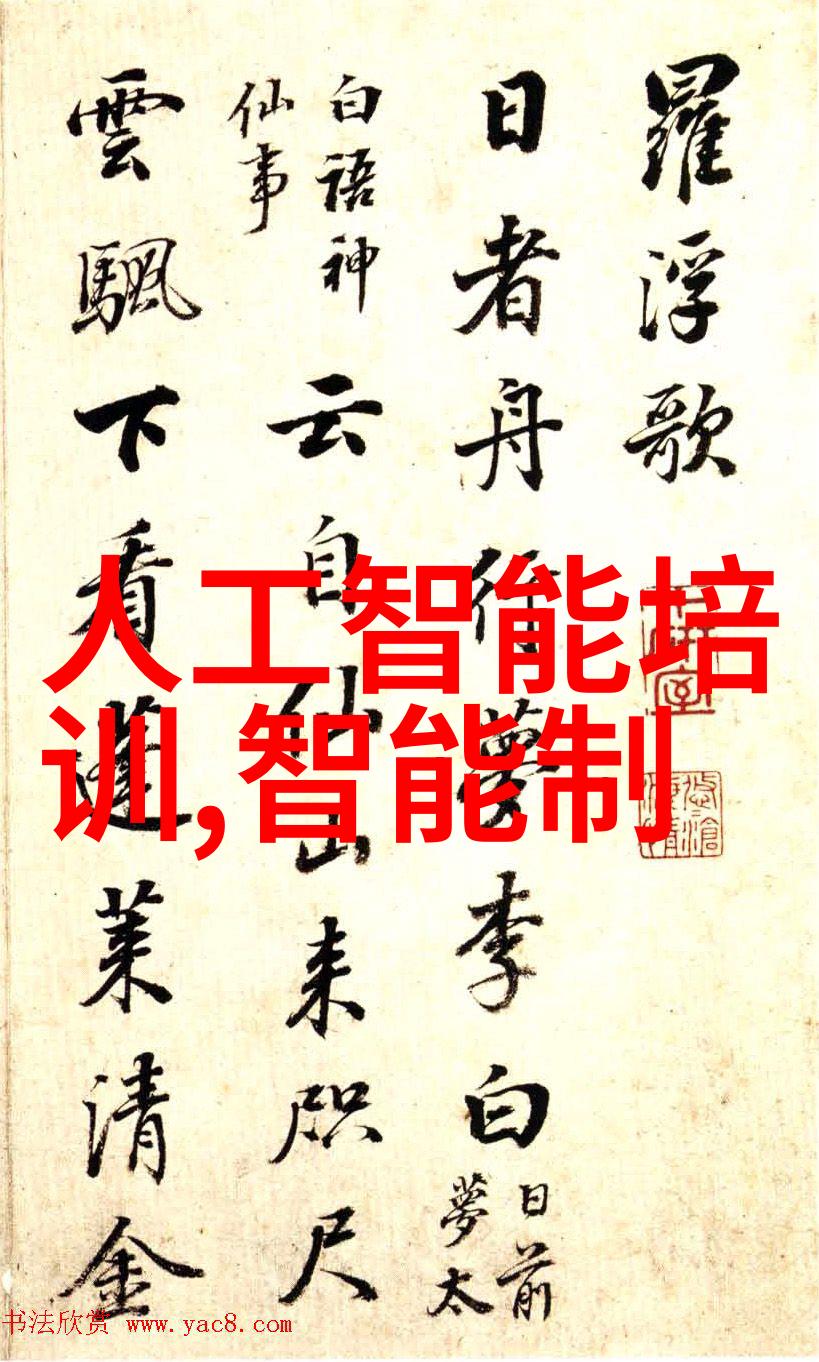 羅浮歌
日者舟行夢李白
日前
夢太
白語神
仙事
云自仙山来咫尺
雲颿下看蓬莱清金
人工智能培
训,智能制
书法欣赏 www.yac8.com